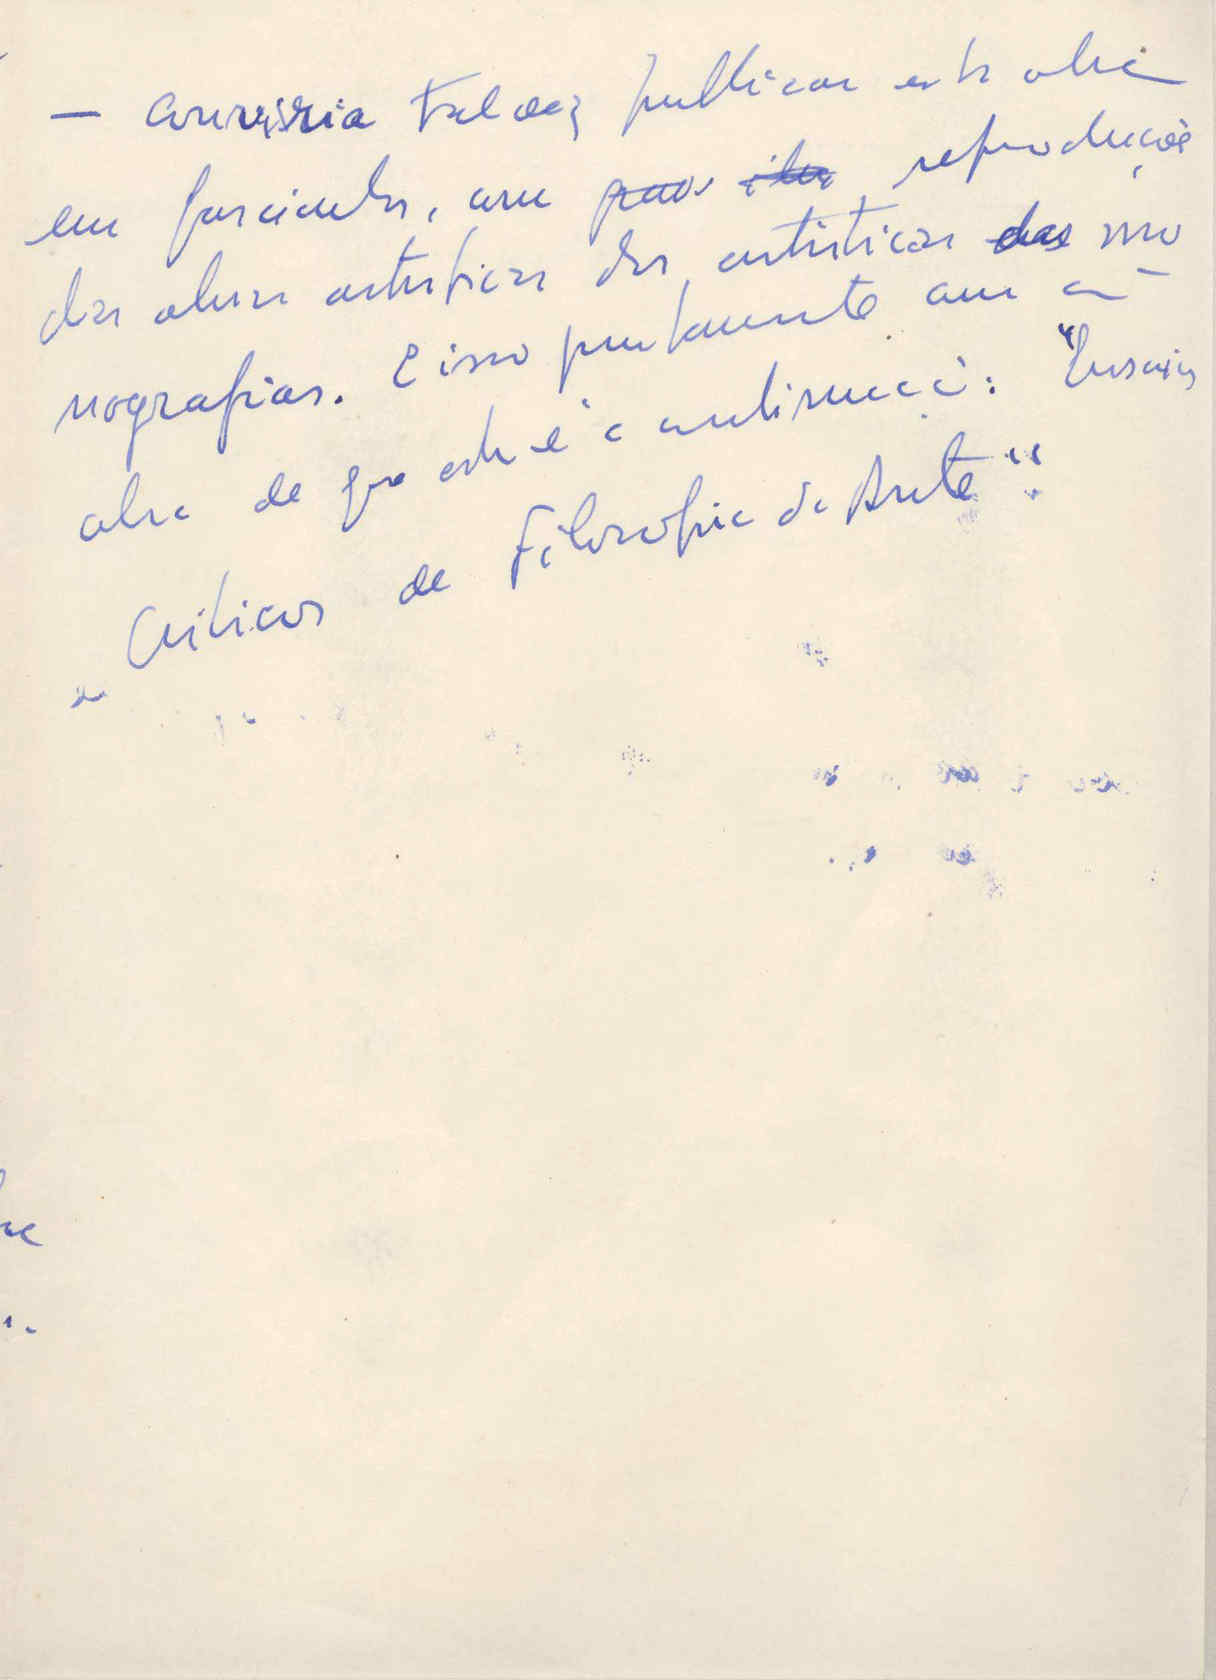 — Conviria talvez publicar esta obra
em fasciculos, com reproduções
das obras artisticas das artisticas das mo
nografias. E isso juntamente com a
obra de que esta é a continuação: "Ensaios
Criticos de Filosofia da Arte"